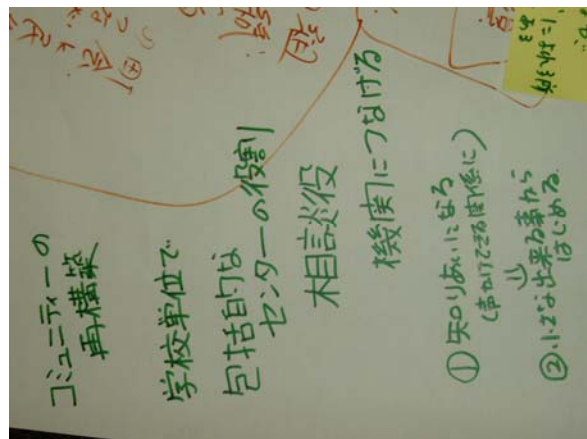 コミュニティーの
再構築
学校単位で
包括的な
センターの役割
相談役
機関につなげる
① 知りあいになる
(声かけできる関係に)
② 小さな出来る事から
はじめる